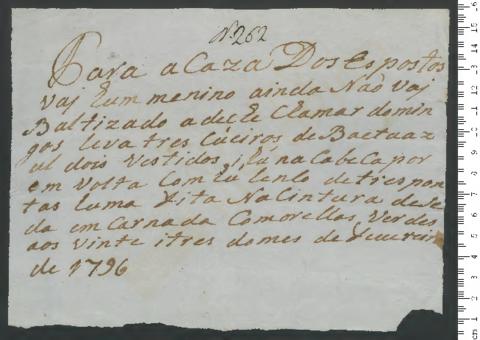 N.º 262
Para a Caza Dos Espostos
vaj hum menino ainda Não vaj
Baltizado a de ce Chamar domin
gos leva tres Cueiros de Baetu az
ul dois vestidos, hu na Cabeca por
em volta Com hu lenso de tres pon
tas huma Fita Na Cintura de se
da em Carnada Com orellas, verdes
aos vinte i tres do mes de Feverei
de 1796